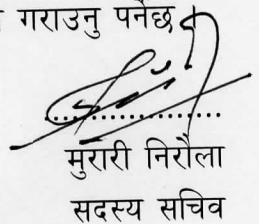 गराउनु पर्नेछ
....................
मुरारी निरौला
सदस्य सचिव